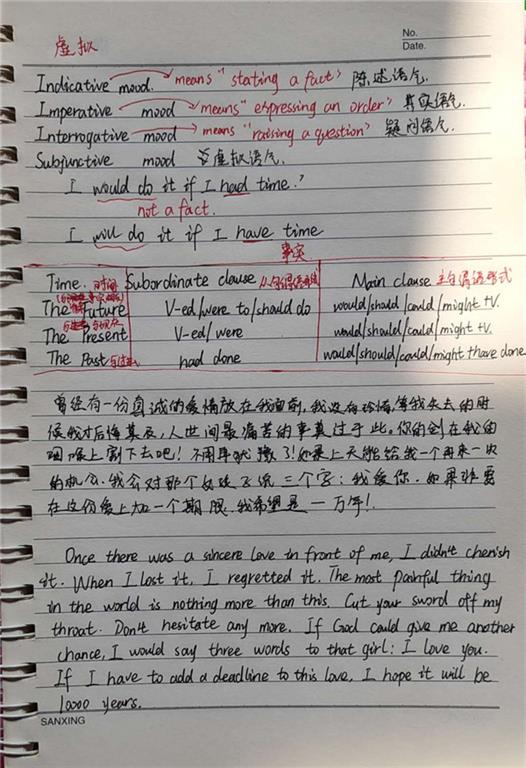 No.
Date.
虚拟
Indicative mood. means "stating a fact" 陈述语气.
Imperative mood means "expressing an order" 语气.
Interrogative mood means "raising a question" 疑问语气.
Subjunctive mood 虚拟语气.
I would do it if I had time.
not a fact.
I will do it if I have time
事实
Time. 时间 Subordinate clause 从句谓语形式 Main clause 主句谓语形式
The Future V-ed/were to/should do would/should/could/might +V.
The Present V-ed/were would/should/could/might +V.
The Past 与过去 had done would/should/could/might +have done
曾经有一份真诚的爱情放在我面前,我没有珍惜,等我失去的时
候我才后悔莫及,人世间最痛苦的事莫过于此。你的剑在我的
咽喉上割下去吧!不用再犹豫了!如果上天能给我一个再来一次
的机会,我会对那个女孩子说三个字:我爱你.如果非要
在这份爱上加一个期限,我希望是一万年!
Once there was a sincere love in front of me, I didn't cherish
it. When I lost it, I regretted it. The most painful thing
in the world is nothing more than this. Cut your sword off my
throat. Don't hesitate any more. If God could give me another
chance, I would say three words to that girl: I love you.
If I have to add a deadline to this love, I hope it will be
10000 years.
SANXING